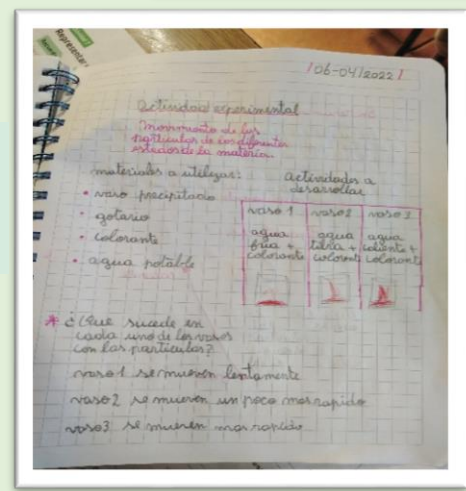 Representar
/ 06-04/2022 /
Actividad experimental
movimiento de las
particulas de los diferentes
estados de la materia.
materiales a utilizar:
• vaso precipitado
• gotario
• colorante
• agua potable
actividades a
desarrollar
vaso 1
agua
fria +
colorante
vaso 2
agua
tibia +
colorante
vaso 3
agua
caliente +
colorante
* ¿Que sucede en
cada uno de los vasos
con las particulas?
vaso 1 se mueven lentamente
vaso 2 se mueven un poco mas rapido
vaso 3 se mueven mas rapido